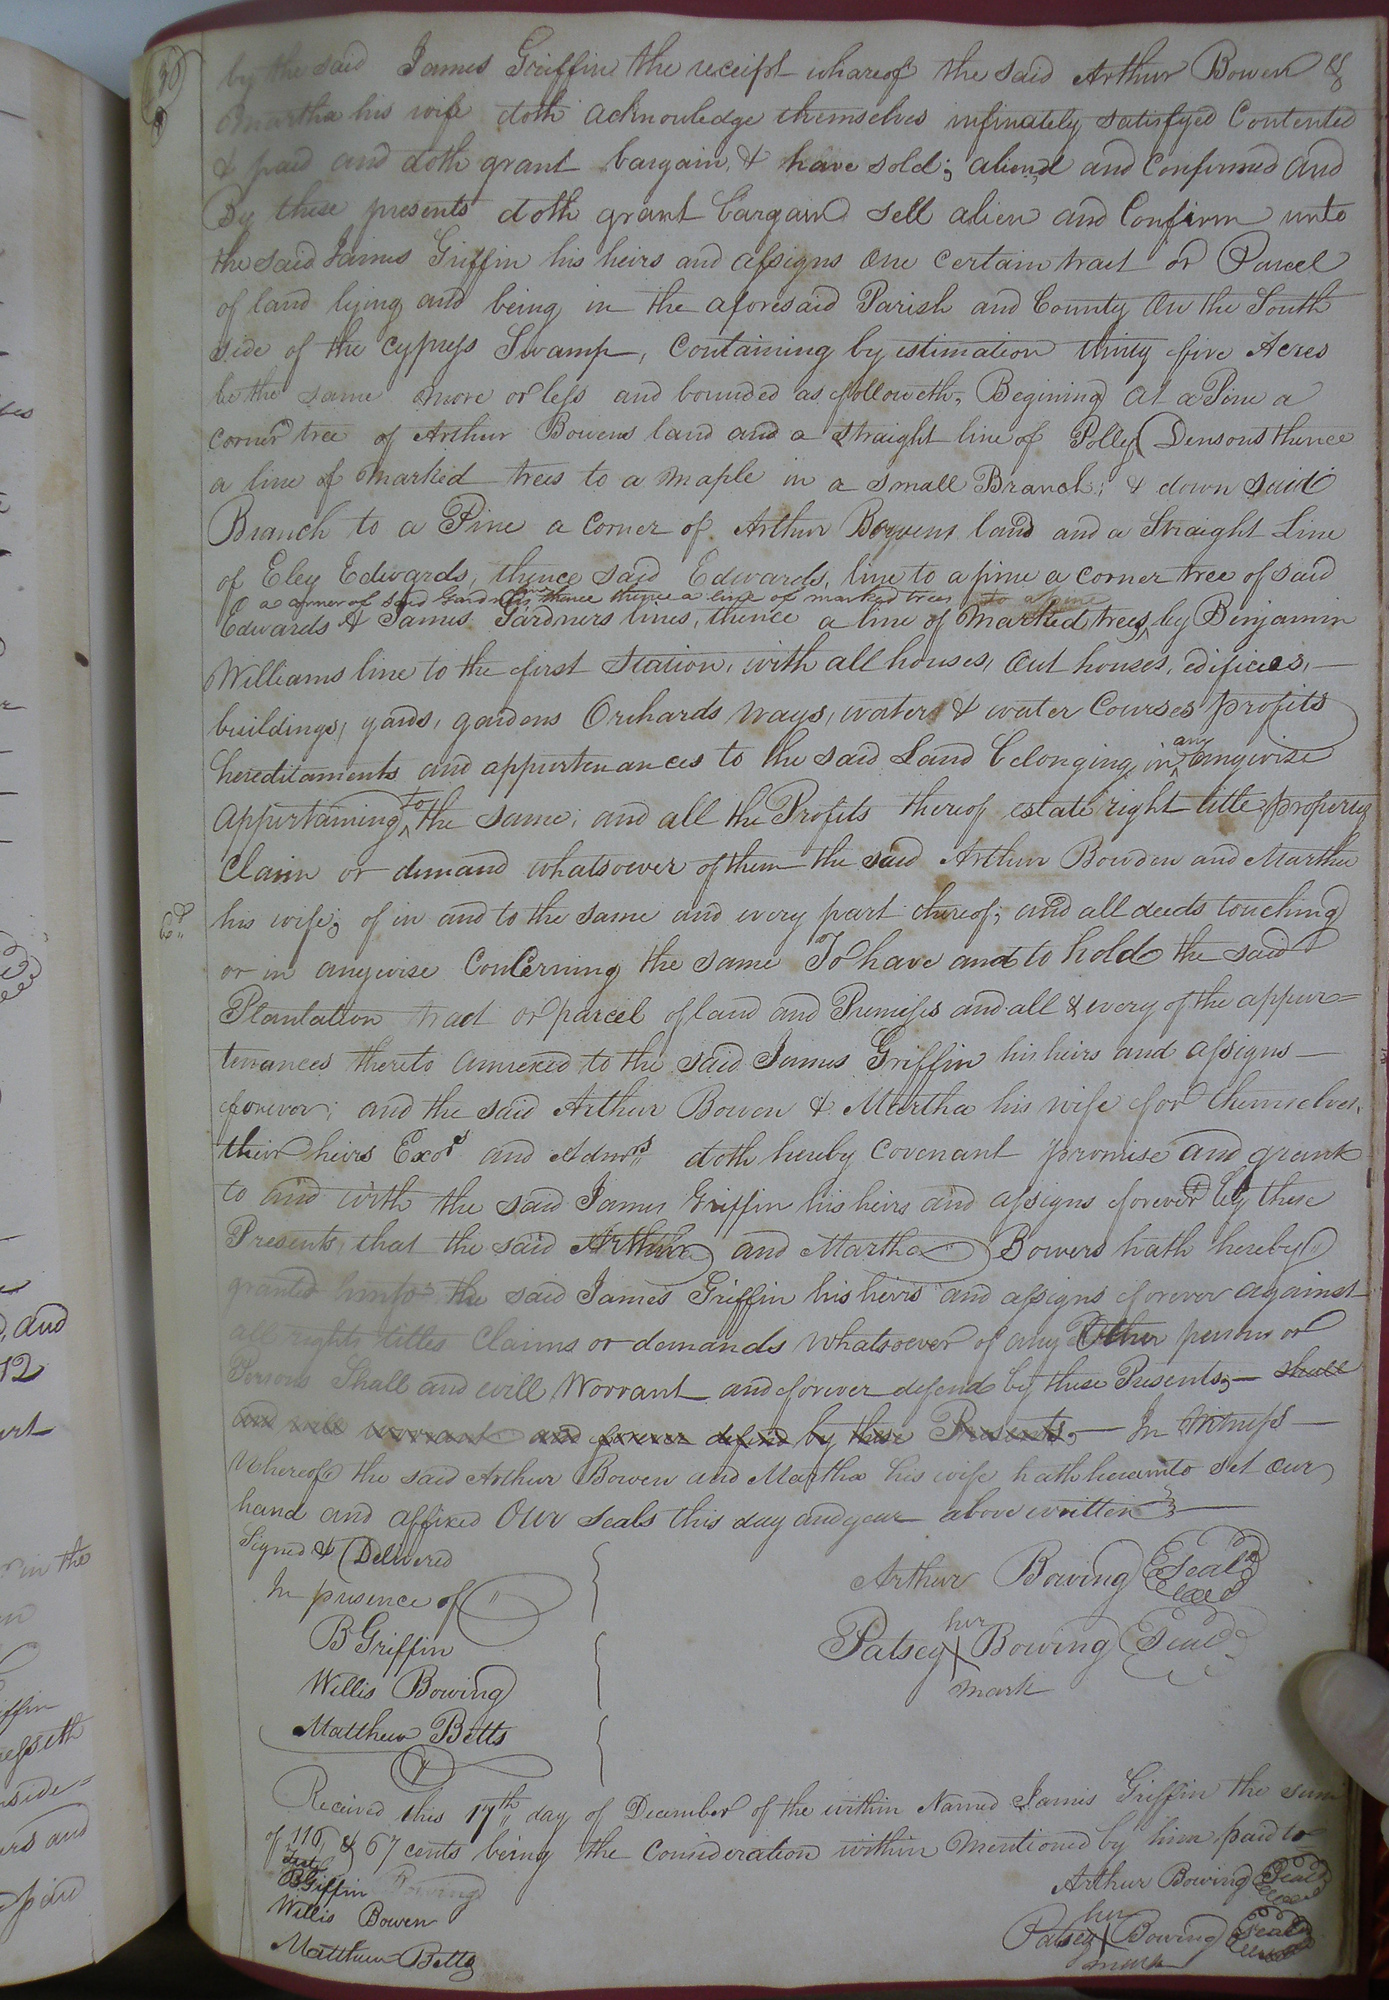 90
by the said James Griffin the receipt whareof the said Arthur Bowen &
Martha his wife doth acknowledge themselves infinately satisfyed Contented
& paid and doth grant bargain, & have sold; aliend and Confirmed and
By these presents doth grant bargain sell alien and Confirm unto
the said James Griffin his heirs and assigns One certain tract or Parcel
of land lying and being in the aforesaid Parish and County On the South
side of the cypress Swamp, Containing by estimation thirty five Acres
be the same more or less and bounded as followeth, Begining at a Pine a
corner tree of Arthur Bowens land and a straight line of Polley Densons thence
a line of marked trees to a maple in a small Branch; & down said
Branch to a Pine a corner of Arthur Bowens land and a Straight Line
of Eley Edwards, thence said Edwards, line to a pine a corner tree of said
a corner of said Gardners thence a line of marked trees to a pine
Edwards & James Gardners lines, thence a line of Marked trees, by Benjamin
Williams line to the first Station, with all houses, Out houses, edifices,
buildings, yards, gardens Orchards ways, waters & water Courses profits
hereditaments and appurtenances to the said Land belonging, in any angwise
appertaining to the same; and all the Profits thereof estate right title property
Claim or demand whatsoever of them the said Arthur Bowden and Martha
his wife; of in and to the same and every part thereof; and all deeds touching
or in anywise Concerning the same To have and to hold the said
Plantation tract or parcel of land and Premises and all & every of the appur=
tenances thereto annexed to the said James Griffin his heirs and assigns
forever; and the said Arthur Bowen & Martha his wife for themselves,
their heirs Exors and Admrs doth hereby Covenant promise and grant
to and with the said James Griffin his heirs and assigns forever by these
Presents, that the said Arthur and Martha Bowers hath hereby
granted unto the said James Griffin his heirs and assigns forever against
all rights titles Claims or demands whatsoever of any Other person or
Persons Shall and will Worrant and forever defend by these Presents; shall
and will worrant and forever defend by these Presents, In Witness
Whereof the said Arthur Bowen and Martha his wife hath hereunto set our
hand and affixed Our seals this day and year above written
Signed & Delivered
In presence of
Arthur Bowing Seal
B Griffin
her
Patsey X Bowing Seal
mark
Willis Bowing
Matthew Betts
Received this 17th day of December of the within Named James Griffin the sum
of 116, & 67 cents being the Consideration within mentioned by him paid to
Test
B Giffin
Arthur Bowing Seal
Willis Bowen
her
Patsey X Bowing Seal
mark
Matthew Betts